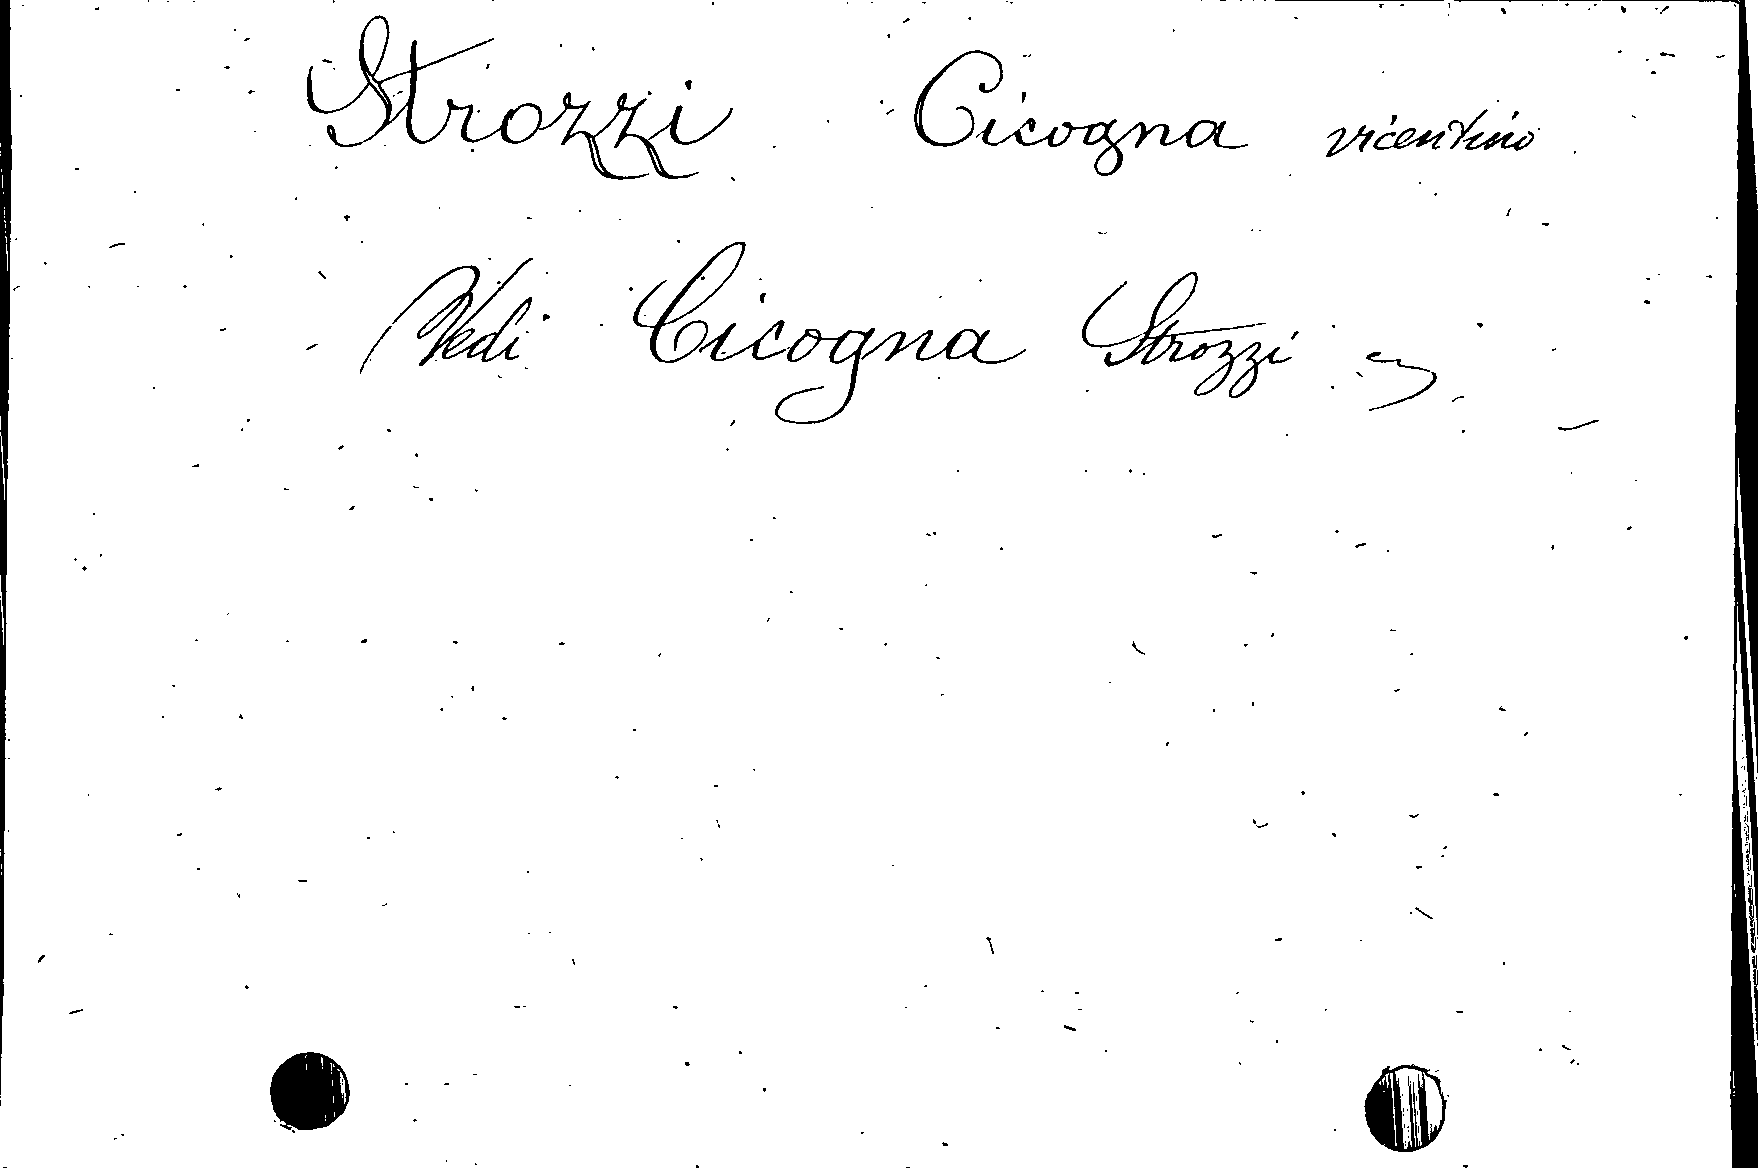 Strozzi Cicogna vicentino
Vedi Cicogna Strozzi